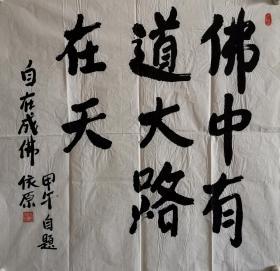 佛中有
道大路
在天
自在成佛 依原
甲午自题